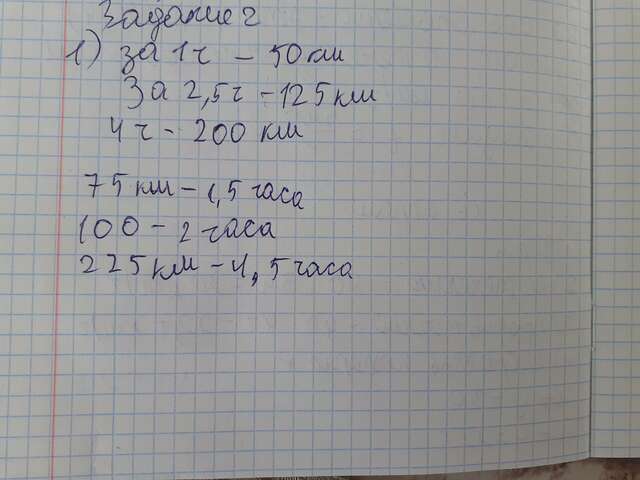 Задание 2
1) за 1ч – 50км
За 2,5ч – 125км
4ч – 200 км
75 км – 1,5 часа
100 – 2 часа
225км – 4,5 часа